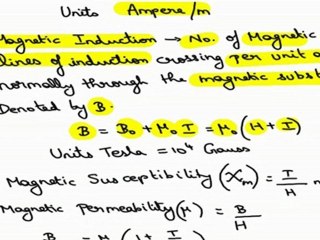 Units Ampere/m
Magnetic Induction → No. of Magnetic
lines of induction crossing per unit
normally through the magnetic subst
Denoted by B.
B = B₀ + μ₀ I = μ₀ (H + I)
Units Tesla = 10⁴ Gauss
Magnetic Susceptibility (χm) = I/H
Magnetic Permeability (μ) = B/H